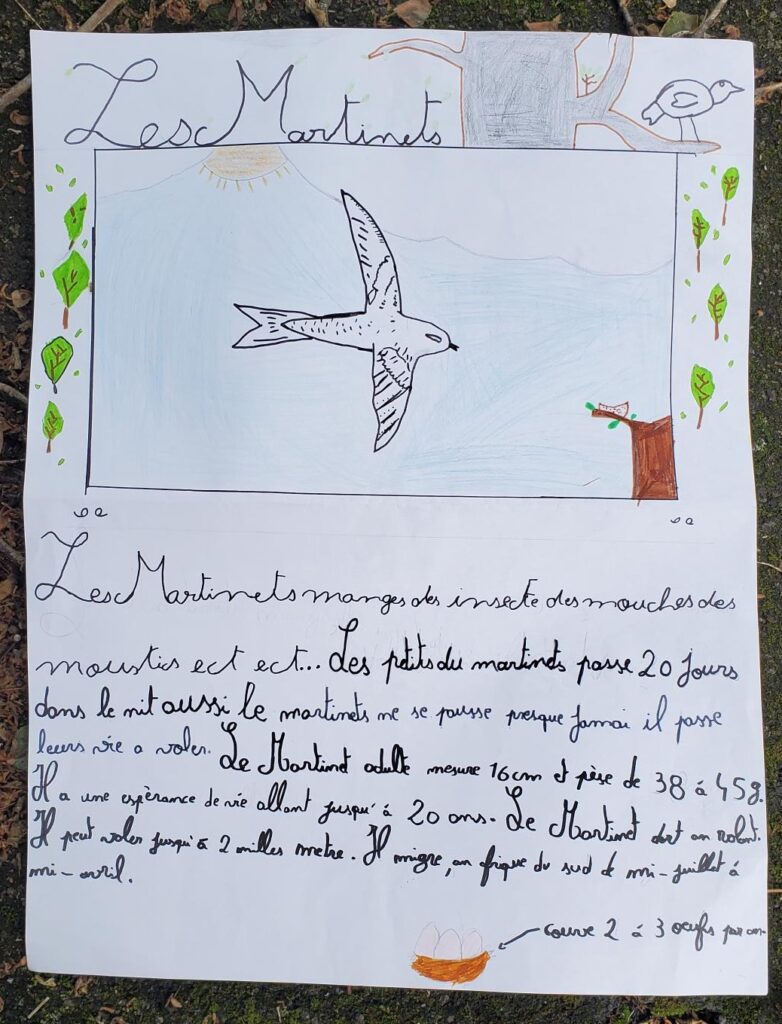 Les Martinets
Les Martinets manges des insecte des mouches des
moustics ect ect... Les petits du martinets passe 20 jours
dans le nit aussi le martinets ne se pausse presque jamai il passe
leurs vie a voler. Le Martinet adulte mesure 16 cm et pèse de 38 à 45g.
Il a une espèrance de vie allant jusqu'à 20 ans. Le Martinet dort en volant.
Il peut voler jusqu'à 2 milles metre. Il migre, en frique du sud de mi-juillet à
mi-avril.
couve 2 à 3 oeufs par an.